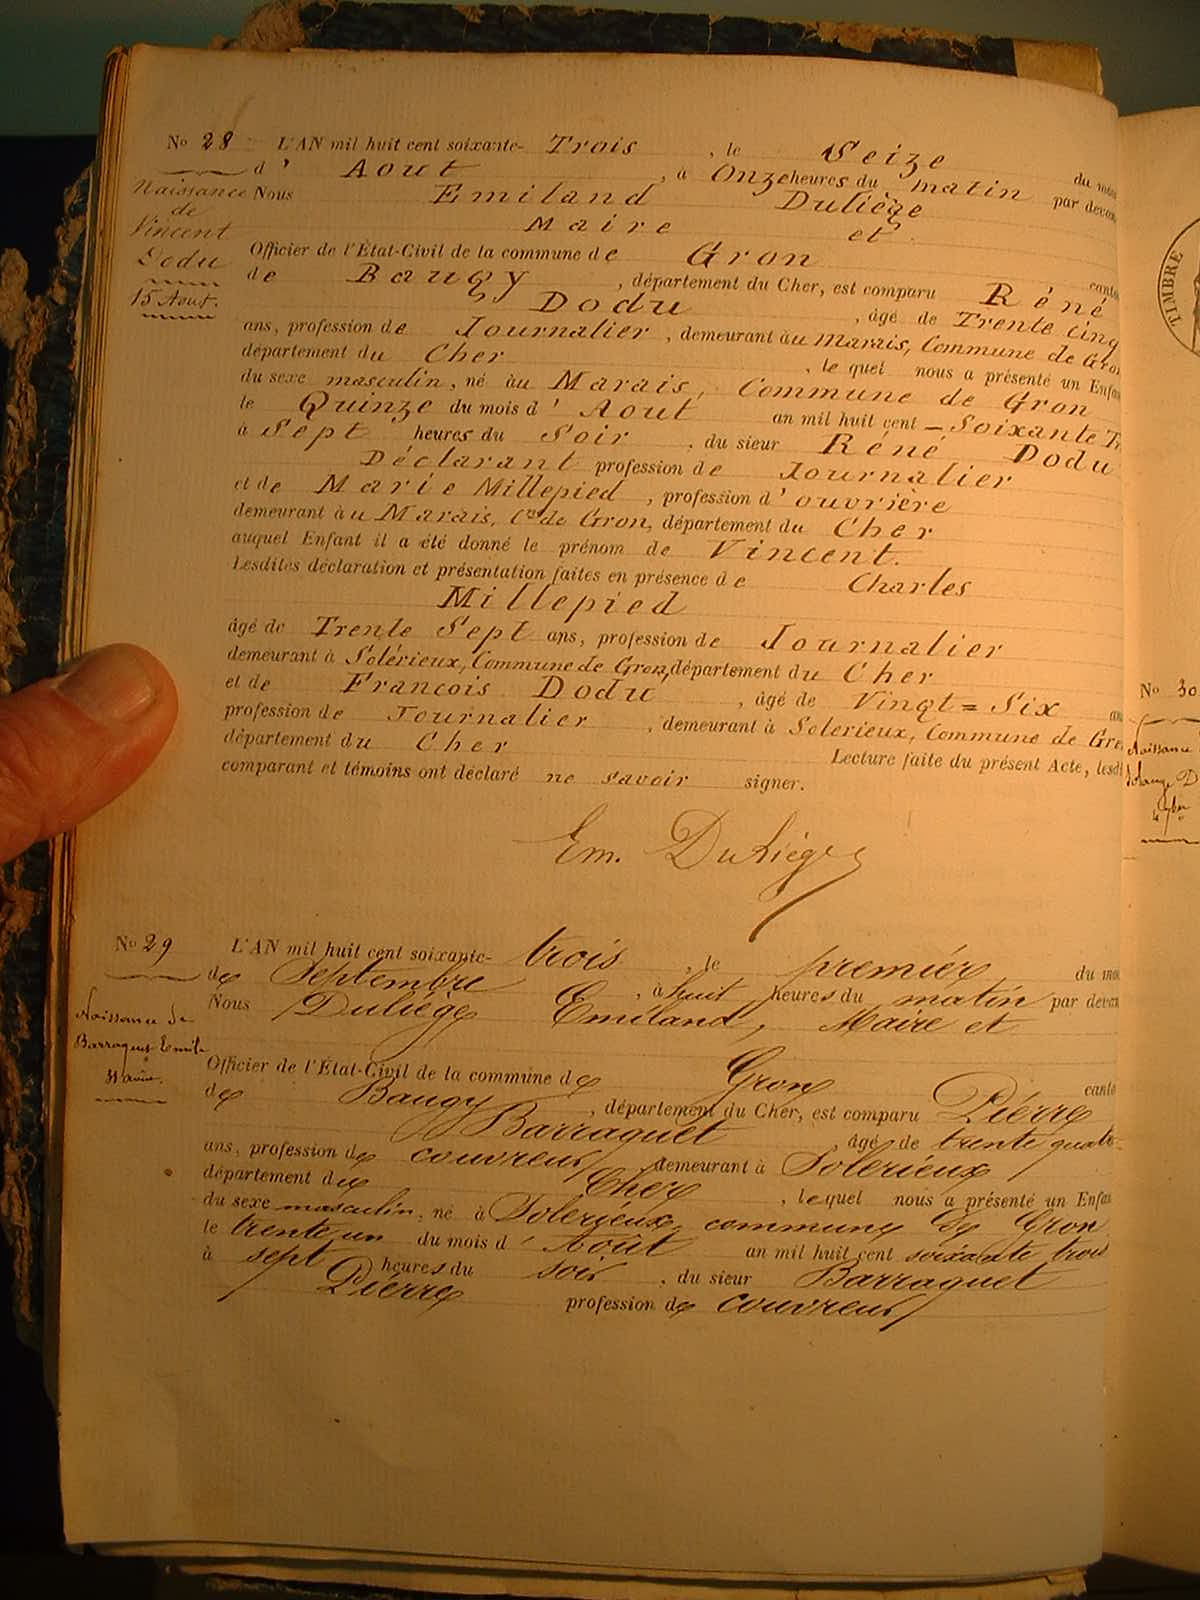 No 28 L'AN mil huit cent soixante- Trois , le Seize du mois
d' Aout , à Onze heures du matin par devan
Naissance
de
Vincent
Dodu
15 Aout.
Nous Emiland Duliège
Maire et
Officier de l'État-Civil de la commune de Gron canto
de Baugy , département du Cher, est comparu Réné
Dodu , âgé de Trente Cinq
ans, profession de Journalier , demeurant àu Marais, Commune de Gron
département du Cher , lequel nous a présenté un Enfan
du sexe masculin, né àu Marais, Commune de Gron
le Quinze du mois d' Aout an mil huit cent – Soixante Tr
à Sept heures du Soir , du sieur Réné Dodu
Déclarant profession de Journalier
et de Marie Millepied , profession d' ouvrière
demeurant àu Marais, Cne de Gron, département du Cher
auquel Enfant il a été donné le prénom de Vincent.
Lesdites déclaration et présentation faites en présence de Charles
Millepied
âgé de Trente Sept ans, profession de Journalier
demeurant à Solérieux, Commune de Gron, département du Cher
et de Francois Dodu , âgé de Vingt = Six an
profession de Journalier , demeurant à Solerieux, Commune de Gro
département du Cher Lecture faite du présent Acte, lesdi
comparant et témoins ont déclaré ne savoir signer.
Em. Duliège
No 29 L'AN mil huit cent soixante- trois , le premier du moi
de Septembre , à huit heures du matin par devan
Naissance de
Barraquet Emile
31 aout.
Nous Duliège Emiland, Maire et
Officier de l'État-Civil de la commune de Gron canto
de Baugy , département du Cher, est comparu Piérre
Barraquet , âgé de trente quatre
ans, profession de couvreur demeurant à Solerieux
département du Cher , lequel nous a présenté un Enfan
du sexe masculin, né à Solerieux, commune de Gron
le trente un du mois d' Août an mil huit cent soixante trois
à sept heures du soir , du sieur Barraquet
Piérre profession de couvreur
TIMBRE
No 30
Naissance
Solange D
4 7bre